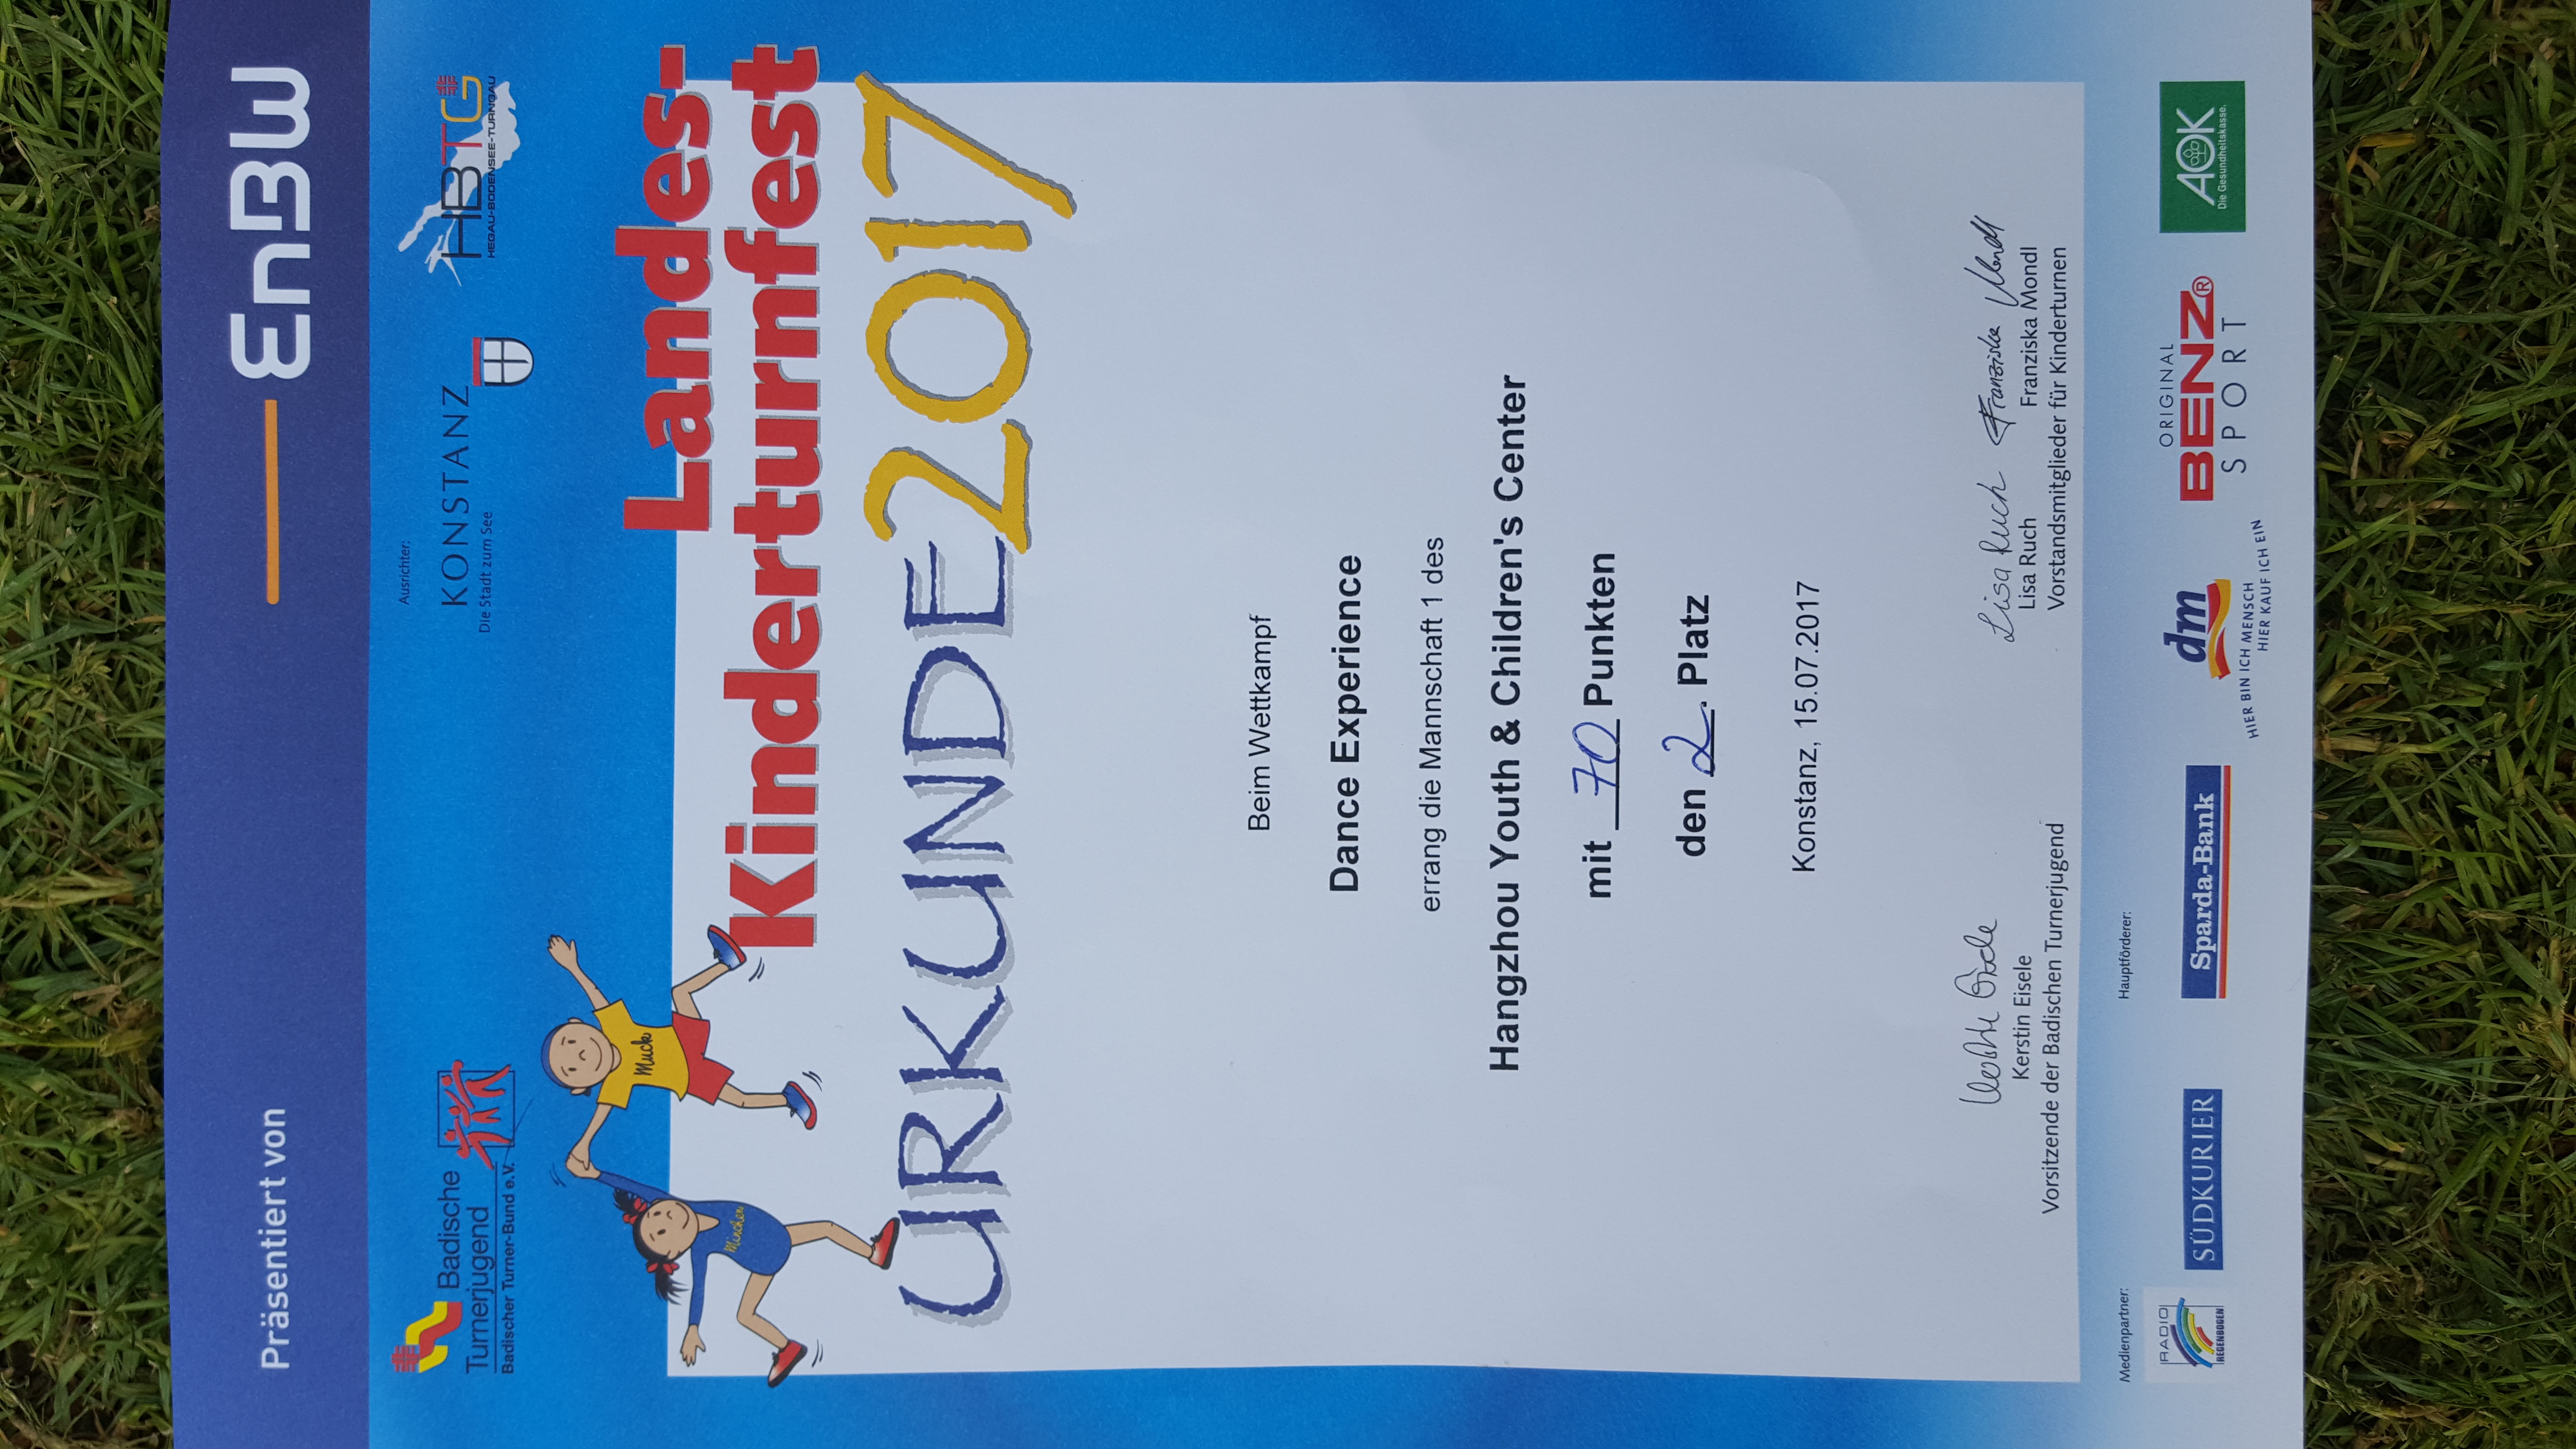 Präsentiert von
EnBW
Badische
Turnerjugend
Badischer Turner-Bund e.V.
Ausrichter:
KONSTANZ
Die Stadt zum See
HBTG
HEGAU-BODENSEE-TURNGAU
Muck
Minchen
Landes-
Kinderturnfest
URKUNDE 2017
Beim Wettkampf
Dance Experience
errang die Mannschaft 1 des
Hangzhou Youth & Children's Center
mit 70 Punkten
den 2. Platz
Konstanz, 15.07.2017
Lisa Ruch Franziska Mondl
Kerstin Eisele
Lisa Ruch Franziska Mondl
Vorsitzende der Badischen Turnerjugend
Vorstandsmitglieder für Kinderturnen
Medienpartner:
Hauptförderer:
RADIO
REGENBOGEN
SÜDKURIER
Sparda-Bank
dm
HIER BIN ICH MENSCH
HIER KAUF ICH EIN
ORIGINAL
BENZ®
SPORT
AOK
Die Gesundheitskasse.